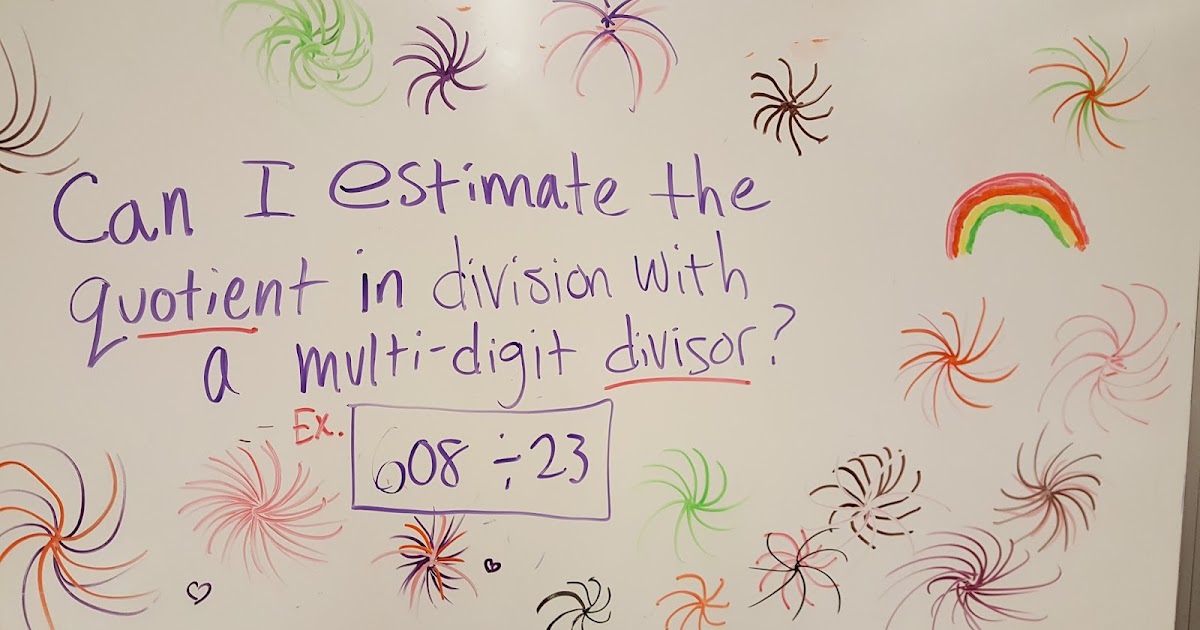 Can I estimate the
quotient in division with
a multi-digit divisor?
Ex. 608 ÷ 23